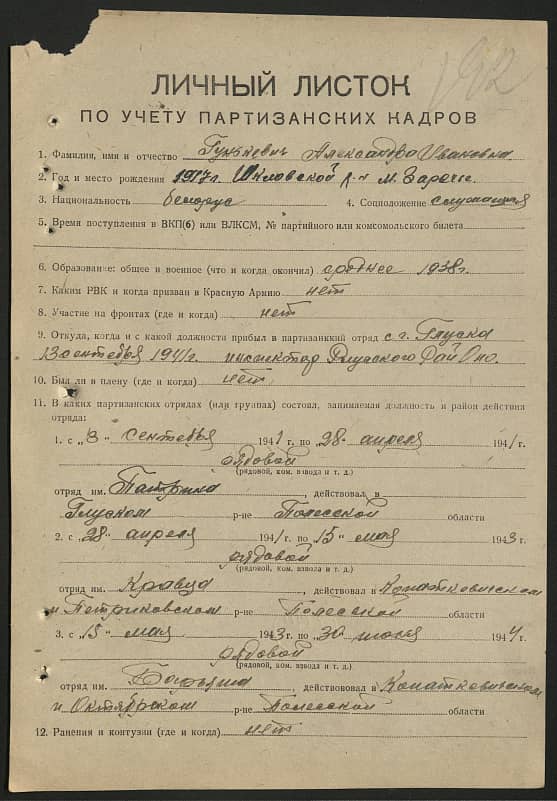 ЛИЧНЫЙ ЛИСТОК
ПО УЧЕТУ ПАРТИЗАНСКИХ КАДРОВ
1. Фамилия, имя и отчество Александра Ивановна
2. Год и место рождения 1917 г. Шкловской р-н м. Заречье
3. Национальность белорус 4. Соцположение служащая
5. Время поступления в ВКП(б) или ВЛКСМ, № партийного или комсомольского билета
6. Образование: общее и военное (что и когда окончил) среднее 1938 г.
7. Каким РВК и когда призван в Красную Армию нет
8. Участие на фронтах (где и когда) нет
9. Откуда, когда и с какой должности прибыл в партизанкий отряд с г. Глуска
сентября 1941 г. инспектор Глусского Рай
10. Был ли в плену (где и когда) нет
11. В каких партизанских отрядах (или группах) состоял, занимаемая должность и район действия
отряда:
1. с „3" сентября 1941 г. по „28" апреля 194 г.
рядовой
(рядовой, ком. взвода и т. д.)
отряд им. , действовал в
Глуском р-не Полесской области
2. с „28" апреля 194 г. по „15" мая 1943 г.
рядовой
(рядовой, ком. взвода и т. д.)
отряд им. Кравца , действовал в Копаткевичском
и Петриковском р-не Полесской области
3. с „15" мая 1943 г. по „30" июня 1944 г.
рядовой
(рядовой, ком. взвода и т. д.)
отряд им. , действовал в Копаткевичском
и Октябрском р-не Полесской области
12. Ранения и контузии (где и когда) нет